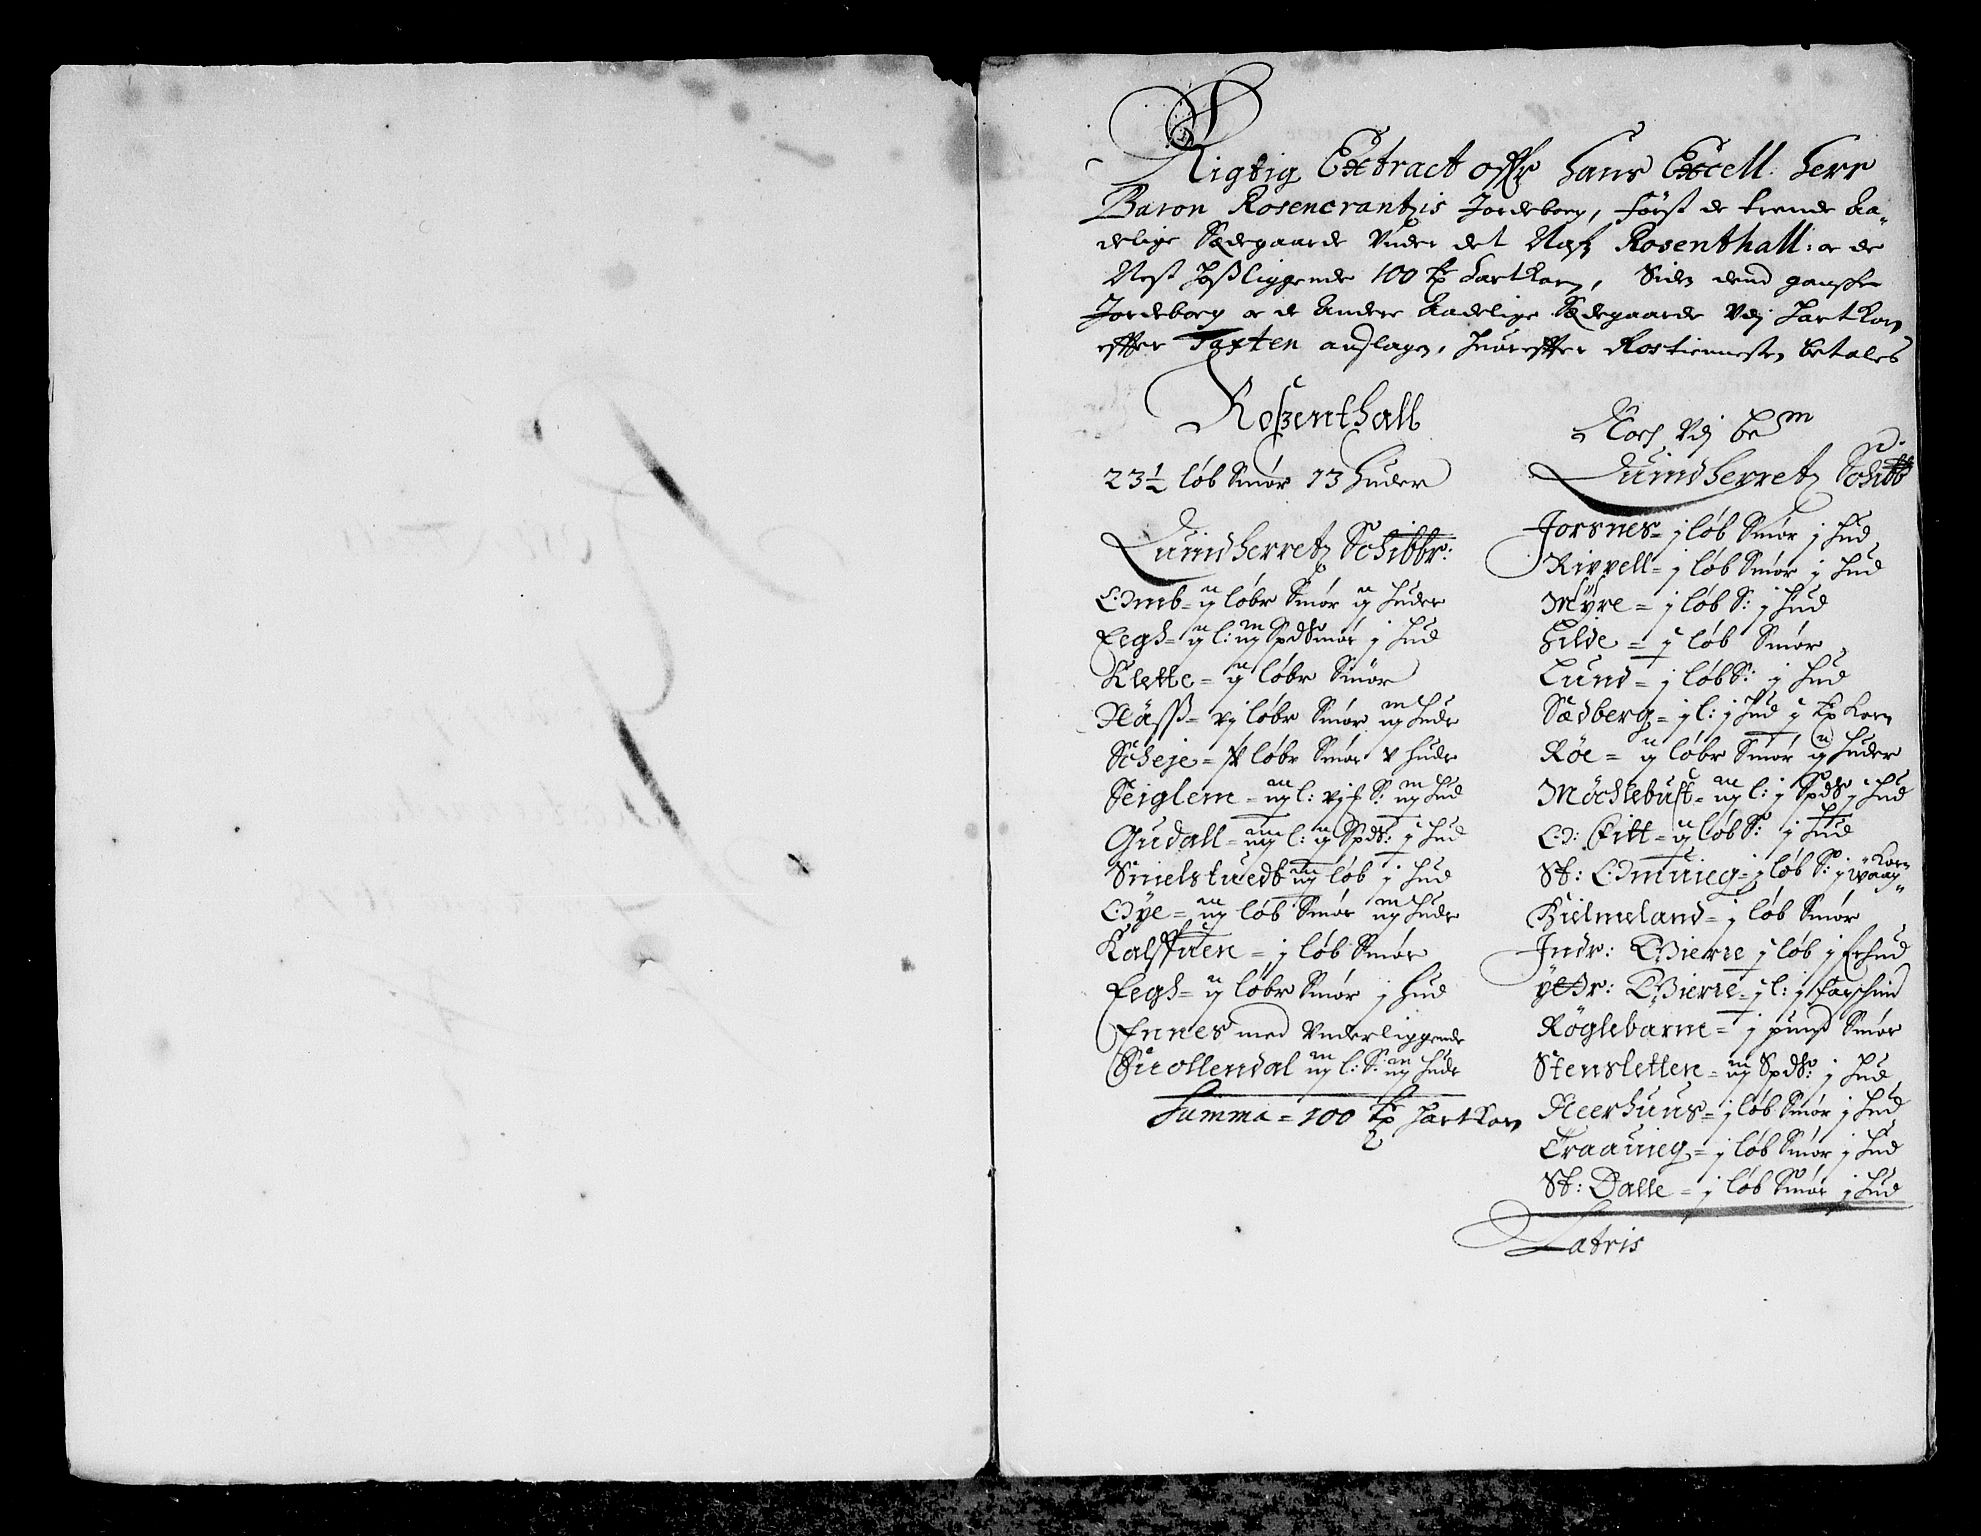 Rigtig Extract offr Hans Excell: Herr
Baron Rosencrantzis Jordeborg, først de trende Aa-
delige Sædegaarde under det Nafn Rosenthall: er de
Nest hosliggende 100 tr Hartkorn, Siden dend gandsche
Jordeborg er de Andere Aadelige Sædegaarde udj Hartkorn
effter Taxten anslagen, huoreffter Rostiennesten betales
Rosenthall
23½ löb Smör 13 Huder
Quindherretz Schibbr:
Omb= ij löbr Smör ij Huder
Eegh= ij l: iij Spd Smör j Hud
Klette= ij löbr Smör
Näss= vj löbr Smör iij Huder
Scheje= v löbr Smör v Huder
Seiglem= iij l: S: iij Hud
Gudall= iiij l: ij Spd S: j Hud
Smelstuedt iij löb j Hud
Øye= iij löb Smör iij Huder
Kalffuen= j löb Smör
Eegh= ij löbr Smör j Hud
Ennes med underliggende
Guollendal iij l: S: iij Huder
Summa= 100 tr Hartkorn
Noch udj bem
Quindherretz Schibb
Jorsnes= j löb Smör j Hud
Rivvell= j löb Smör j Hud
Myre= j löb S: j Hud
Hilde= j löb Smör
Lund= j löb S: j Hud
Sædberg= j l: j Hud j tr Korn
Röe= ij löbr Smör ij Huder
Möchlebust= iij l: j Spd S: j Hud
O: Fitt= ij löb S: j Hud
St: Omuieg= j löb S: j Waag Korn
Gielmeland= j löb Smör
Indr: Bierre j löb j Hud
yttr: Bierre= j l: j
Röglebarme= j pund Smör
Stensletten= iij Spd S: j Hud
Neerhuus= j löb Smör j Hud
Traauieg= j löb Smör j Hud
St: Dalle= j löb Smör j Hud
Latris